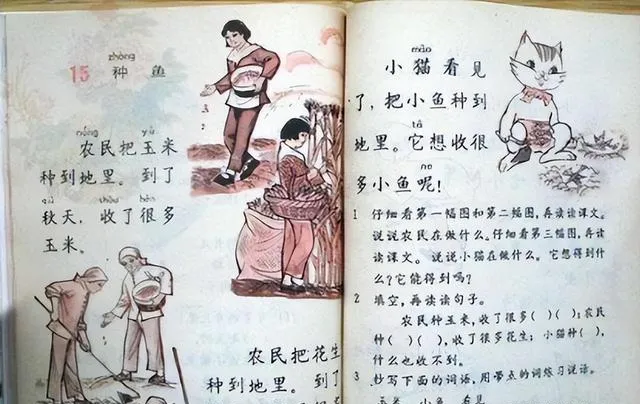 zhòng
15 种 鱼
nóng yù
农民把玉米
种到地里。到了
qiū shōu hěn
秋天，收了很多
玉米。
农民把花生
种到地里。到了
māo
小猫看见
了，把小鱼种到
tā
地里。它想收很
ne
多小鱼呢！
1 仔细看第一幅图和第二幅图，再读读课文。
说说农民在做什么。仔细看第三幅图，再读
读课文。说说小猫在做什么。它想得到什
么？它能得到吗？
2 填空，再读读句子。
农民种玉米，收了很多( )( )；农民
种( )( )，收了很多花生；小猫种( )，
什么也收不到。
3 抄写下面的词语，用带点的词练习说话。
玉米 小鱼 看见